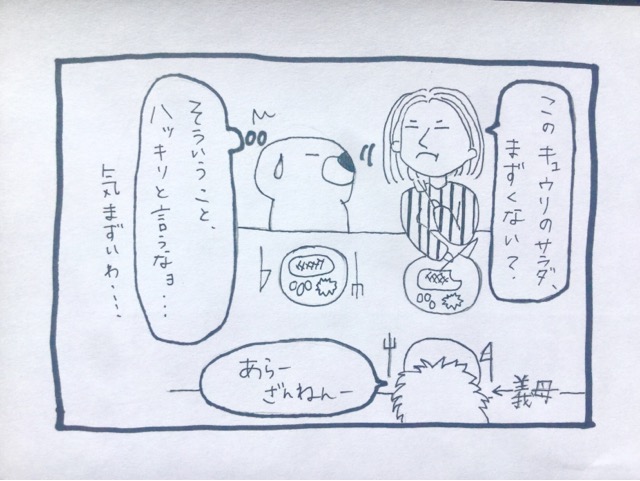 このキュウリのサラダ、
まずくないて?
そういうこと、
ハッキリと言うなョ...
気まずいわ・・・
あらー
ざんねんー
←義母